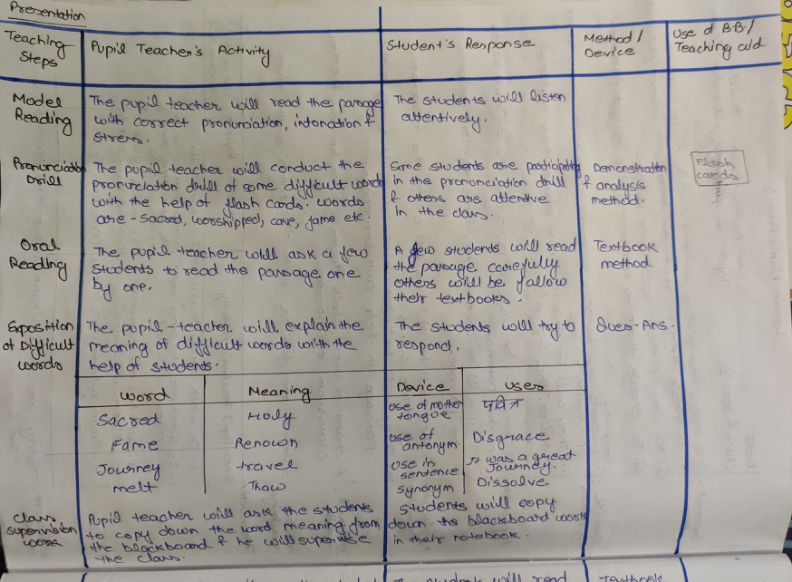 Presentation
Teaching Steps | Pupil Teacher's Activity | Student's Response | Method / Device | Use of B.B./ Teaching aid
Model Reading
The pupil teacher will read the passage
with correct pronunciation, intonation &
stress.
The students will listen
attentively.
Pronunciation Drill
The pupil teacher will conduct the
pronunciation drill of some difficult words
with the help of flash cards. words
are - Sacred, worshipped, cave, fame etc.
Some students are participating
in the pronunciation drill
& others are attentive
in the class.
Demonstration
& analysis
method.
Flash
cards
Oral
Reading
The pupil teacher will ask a few
students to read the passage one
by one.
A few students will read
the passage carefully
others will be follow
their textbooks.
Textbook
method
Exposition
of Difficult
words
The pupil-teacher will explain the
meaning of difficult words with the
help of students.
The students will try to
respond.
Ques-Ans.
Word | Meaning | Device | Uses
Sacred | Holy | use of mother tongue | पवित्र
Fame | Renown | use of antonym | Disgrace
Journey | travel | use in sentence | It was a great Journey.
melt | Thaw | synonym | Dissolve
Class
supervision
work
Pupil teacher will ask the students
to copy down the word meaning from
the blackboard & he will supervise
the class.
students will copy
down the blackboard work
in their notebook.